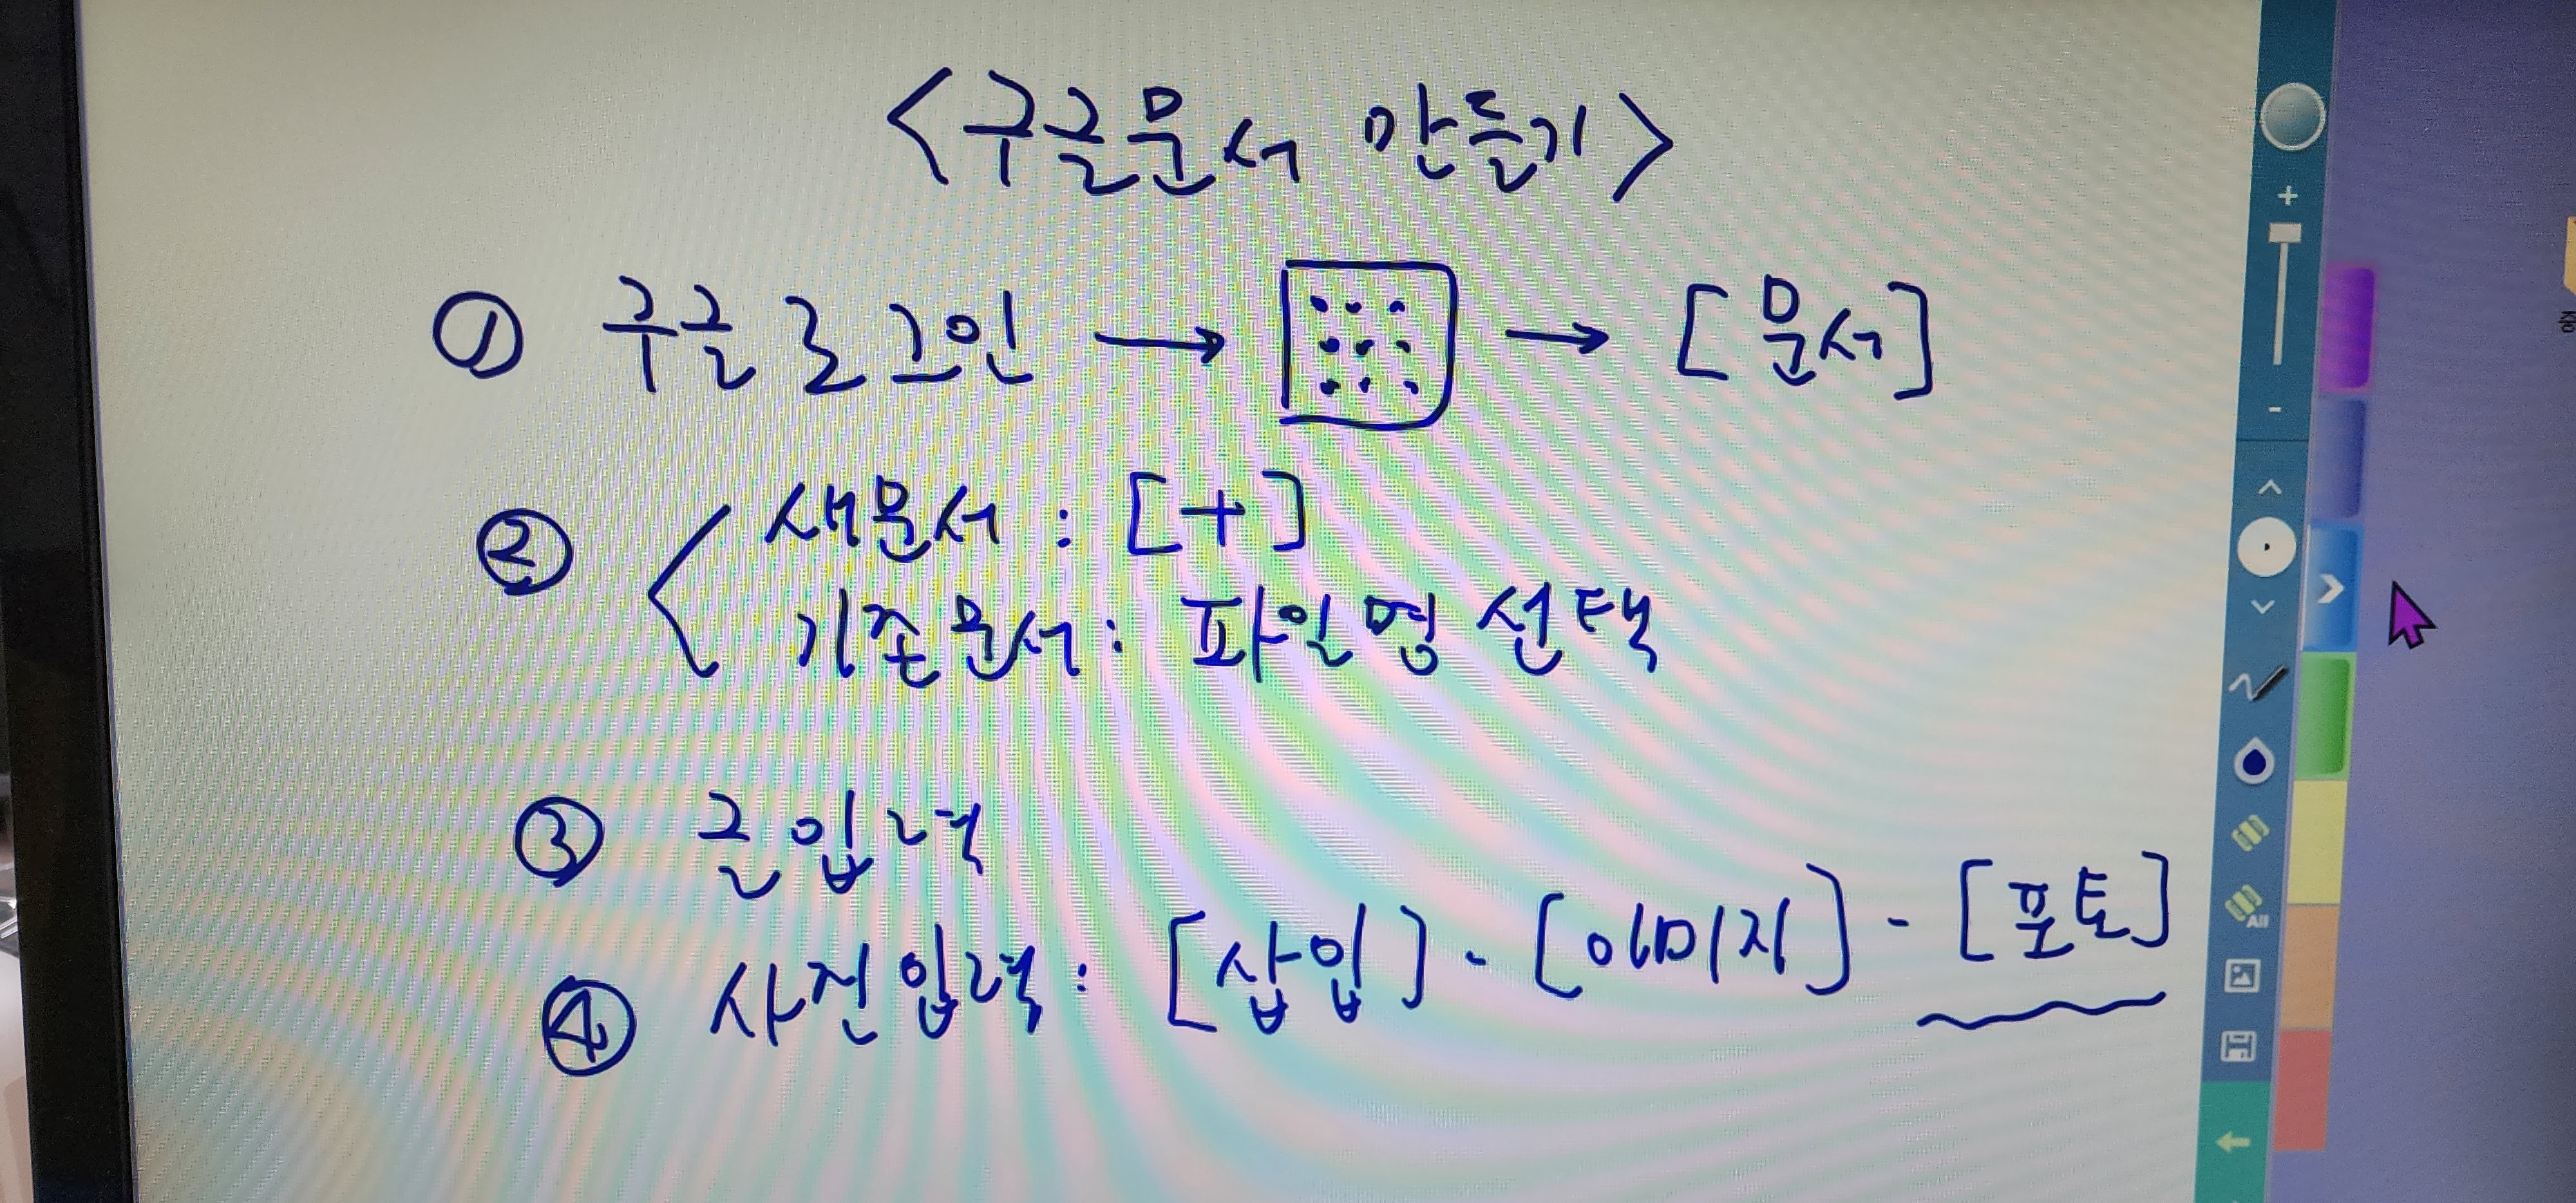 <구글문서 만들기>
① 구글로그인 → → [문서]
② 새문서 : [+]
기존문서 : 파일명 선택
③ 글입력
④ 사진입력 : [삽입] - [이미지] - [포토]
+
-
All